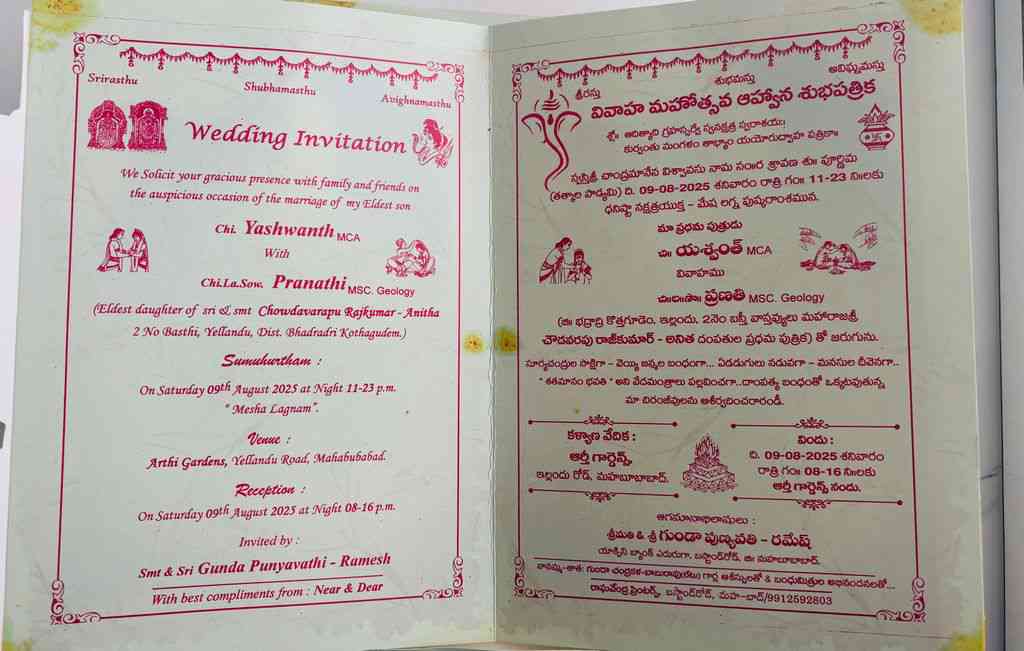 Srirasthu
Shubhamasthu
Avighnamasthu
Wedding Invitation
We Solicit your gracious presence with family and friends on
the auspicious occasion of the marriage of my Eldest son
Chi. Yashwanth MCA
With
Chi.La.Sow. Pranathi MSC. Geology
(Eldest daughter of sri & smt Chowdavarapu Rajkumar - Anitha
2 No Basthi, Yellandu, Dist. Bhadradri Kothagudem.)
Sumuhurtham :
On Saturday 09th August 2025 at Night 11-23 p.m.
" Mesha Lagnam".
Venue :
Arthi Gardens, Yellandu Road, Mahabubabad.
Reception :
On Saturday 09th August 2025 at Night 08-16 p.m.
Invited by :
Smt & Sri Gunda Punyavathi - Ramesh
With best compliments from : Near & Dear
శ్రీరస్తు
శుభమస్తు
అవిఘ్నమస్తు
వివాహ మహోత్సవ ఆహ్వాన శుభపత్రిక
శ్లో॥ ఆదిత్యాది గ్రహస్సర్వే స్వనక్షత్ర స్వరాశయః।
కుర్వంతు మంగళం తాభ్యాం యయోరుద్వాహ పత్రికా॥
స్వస్తిశ్రీ చాంద్రమానేన విశ్వావసు నామ సం॥ర శ్రావణ శు॥ పూర్ణిమ
(తత్కాల పాడ్యమి) ది. 09-08-2025 శనివారం రాత్రి గం॥ 11-23 ని॥లకు
ధనిష్టా నక్షత్రయుక్త - మేష లగ్న పుష్కరాంశమున.
మా ప్రథమ పుత్రుడు
చి॥ యశ్వంత్ MCA
వివాహము
చి॥ల॥సౌ॥ ప్రణతి MSC. Geology
(జి॥ భద్రాద్రి కొత్తగూడెం, ఇల్లందు, 2నెం బస్తీ వాస్తవ్యులు మహారాజశ్రీ
చౌదవరపు రాజ్‌కుమార్ - అనిత దంపతుల ప్రథమ పుత్రిక) తో జరుగును.
సూర్యచంద్రుల సాక్షిగా - వెయ్యి జన్మల బంధంగా... ఏడడుగులు నడువగా - మనసుల దీవెనగా..
" శతమానం భవతి " అని వేదమంత్రాలు పల్లవించగా..దాంపత్య బంధంతో ఒక్కటవుతున్న
మా చిరంజీవులను ఆశీర్వదించరారండి.
కళ్యాణ వేదిక :
ఆర్తీ గార్డెన్స్,
ఇల్లందు రోడ్, మహబూబాబాద్.
విందు :
ది. 09-08-2025 శనివారం
రాత్రి గం॥ 08-16 ని॥లకు
ఆర్తీ గార్డెన్స్ నందు.
ఆగమనాభిలాషులు :
శ్రీమతి & శ్రీ గుండా పుణ్యవతి - రమేష్
యాక్సిస్ బ్యాంక్ ఎదురుగా, బస్టాండ్‌రోడ్, జి॥ మహబూబాబాద్.
నానమ్మ-తాత: గుండా చంద్రకళ-బాబురావు(లేటు) గార్ల ఆశీస్సులతో & బంధుమిత్రుల అభినందనలతో...
రాఘవేంద్ర ప్రింటర్స్, బస్టాండ్‌రోడ్, మహ-బాద్/9912592803